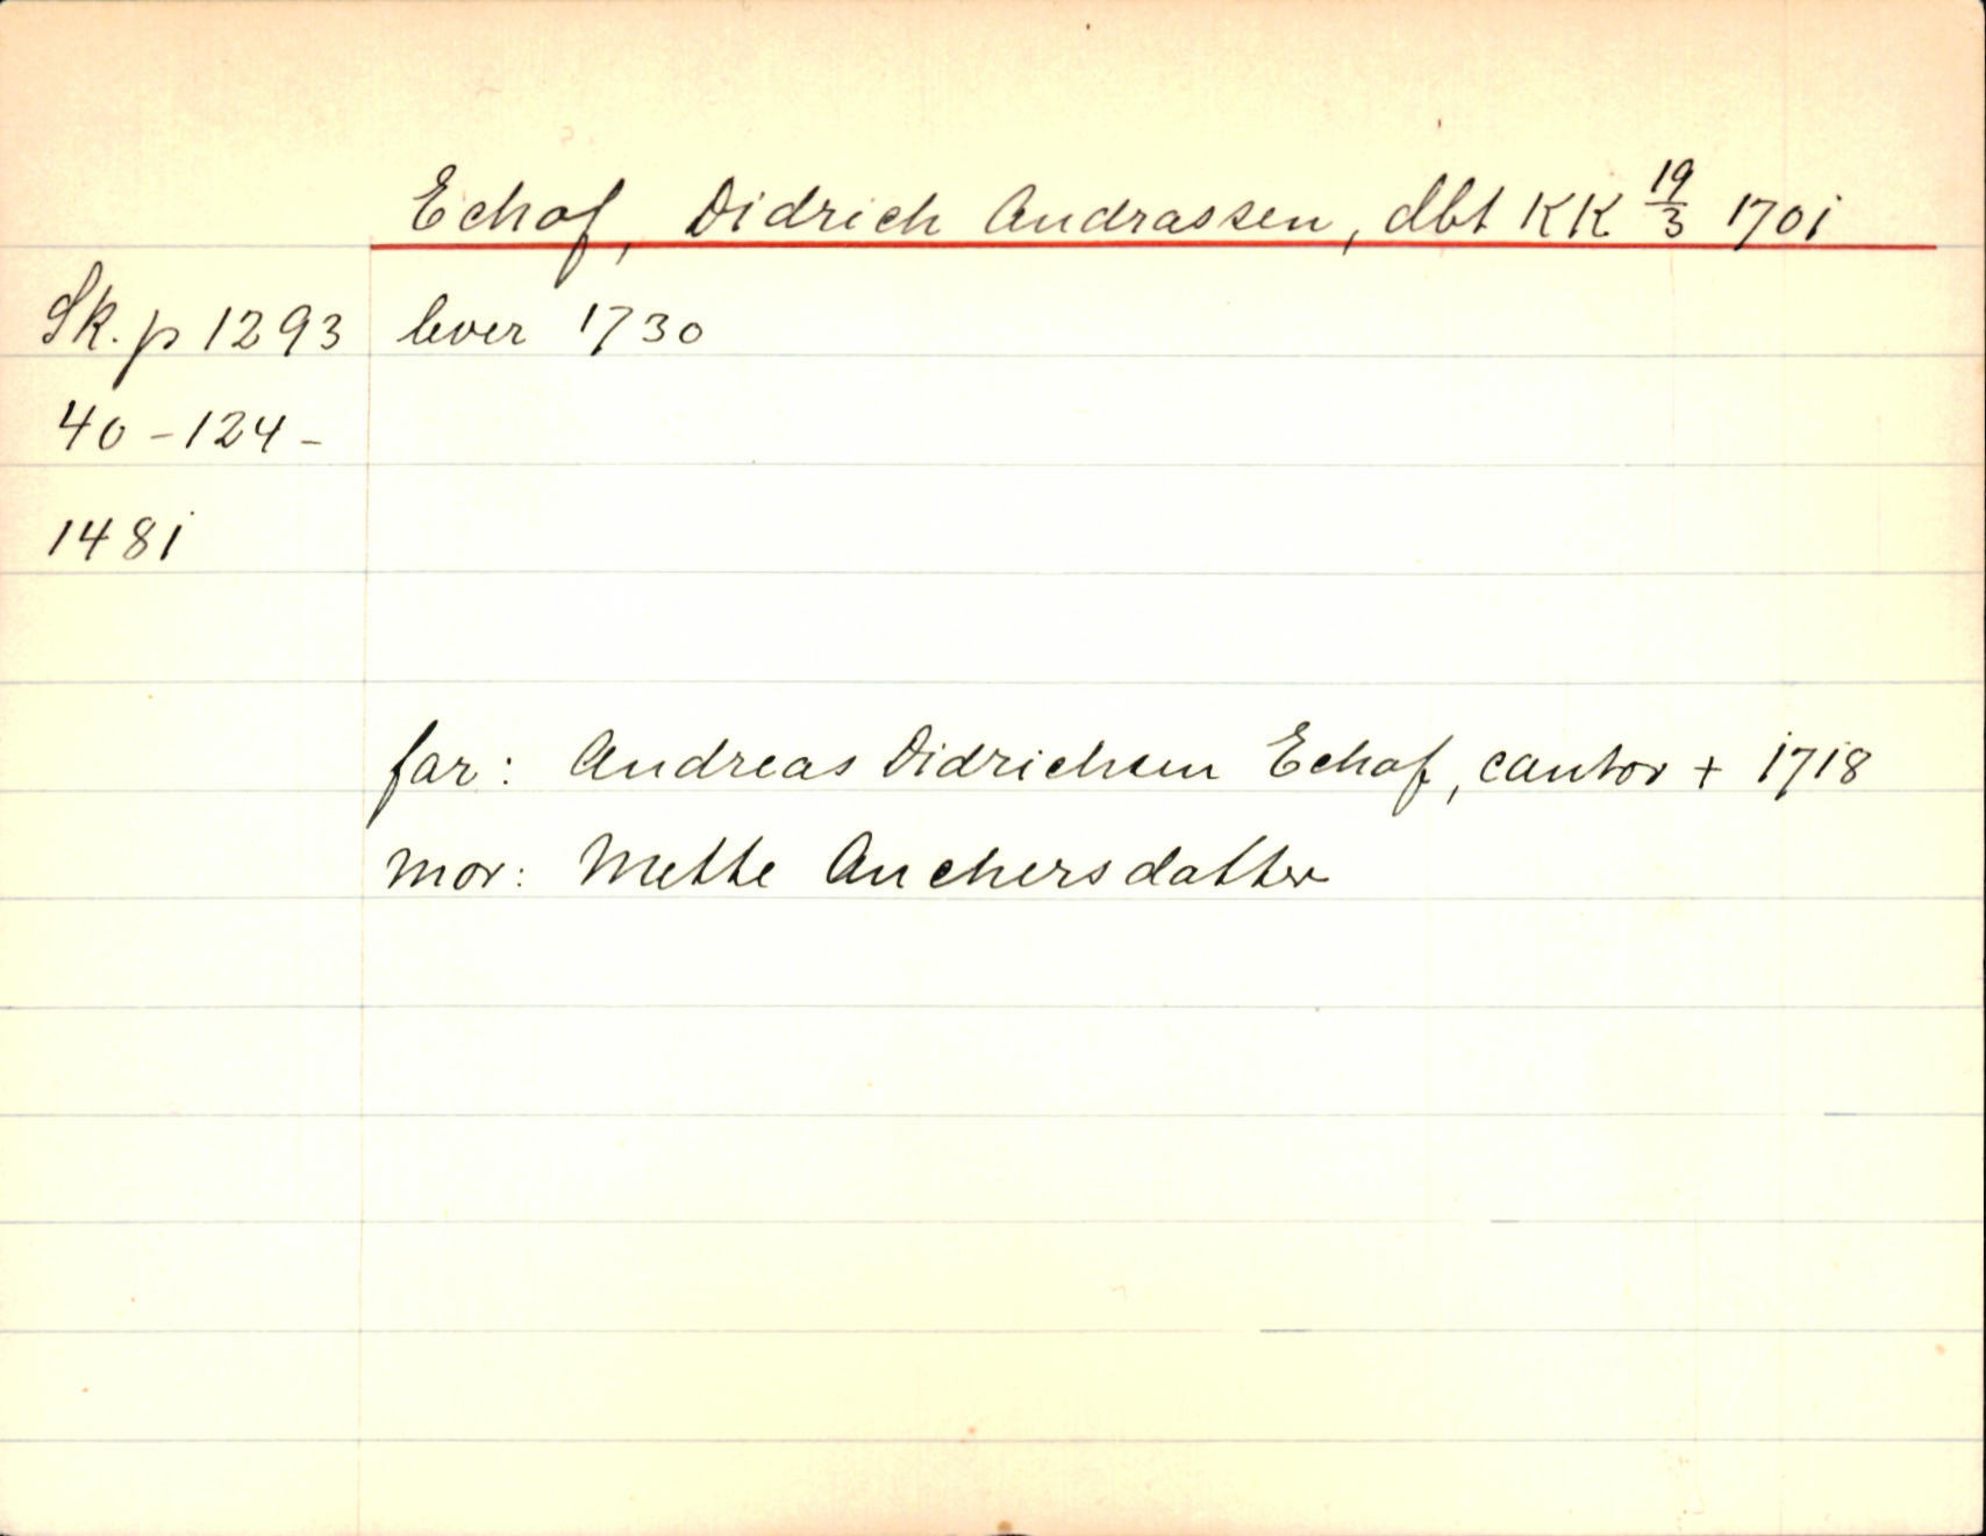 Echof, Didrich Andrassen, dbt KK 19/3 1701
Sk. p 1293 lever 1730
40 - 124 -
1481
far: Andreas Didrichsen Echof, cantor + 1718
mor: Mette Anchersdatter